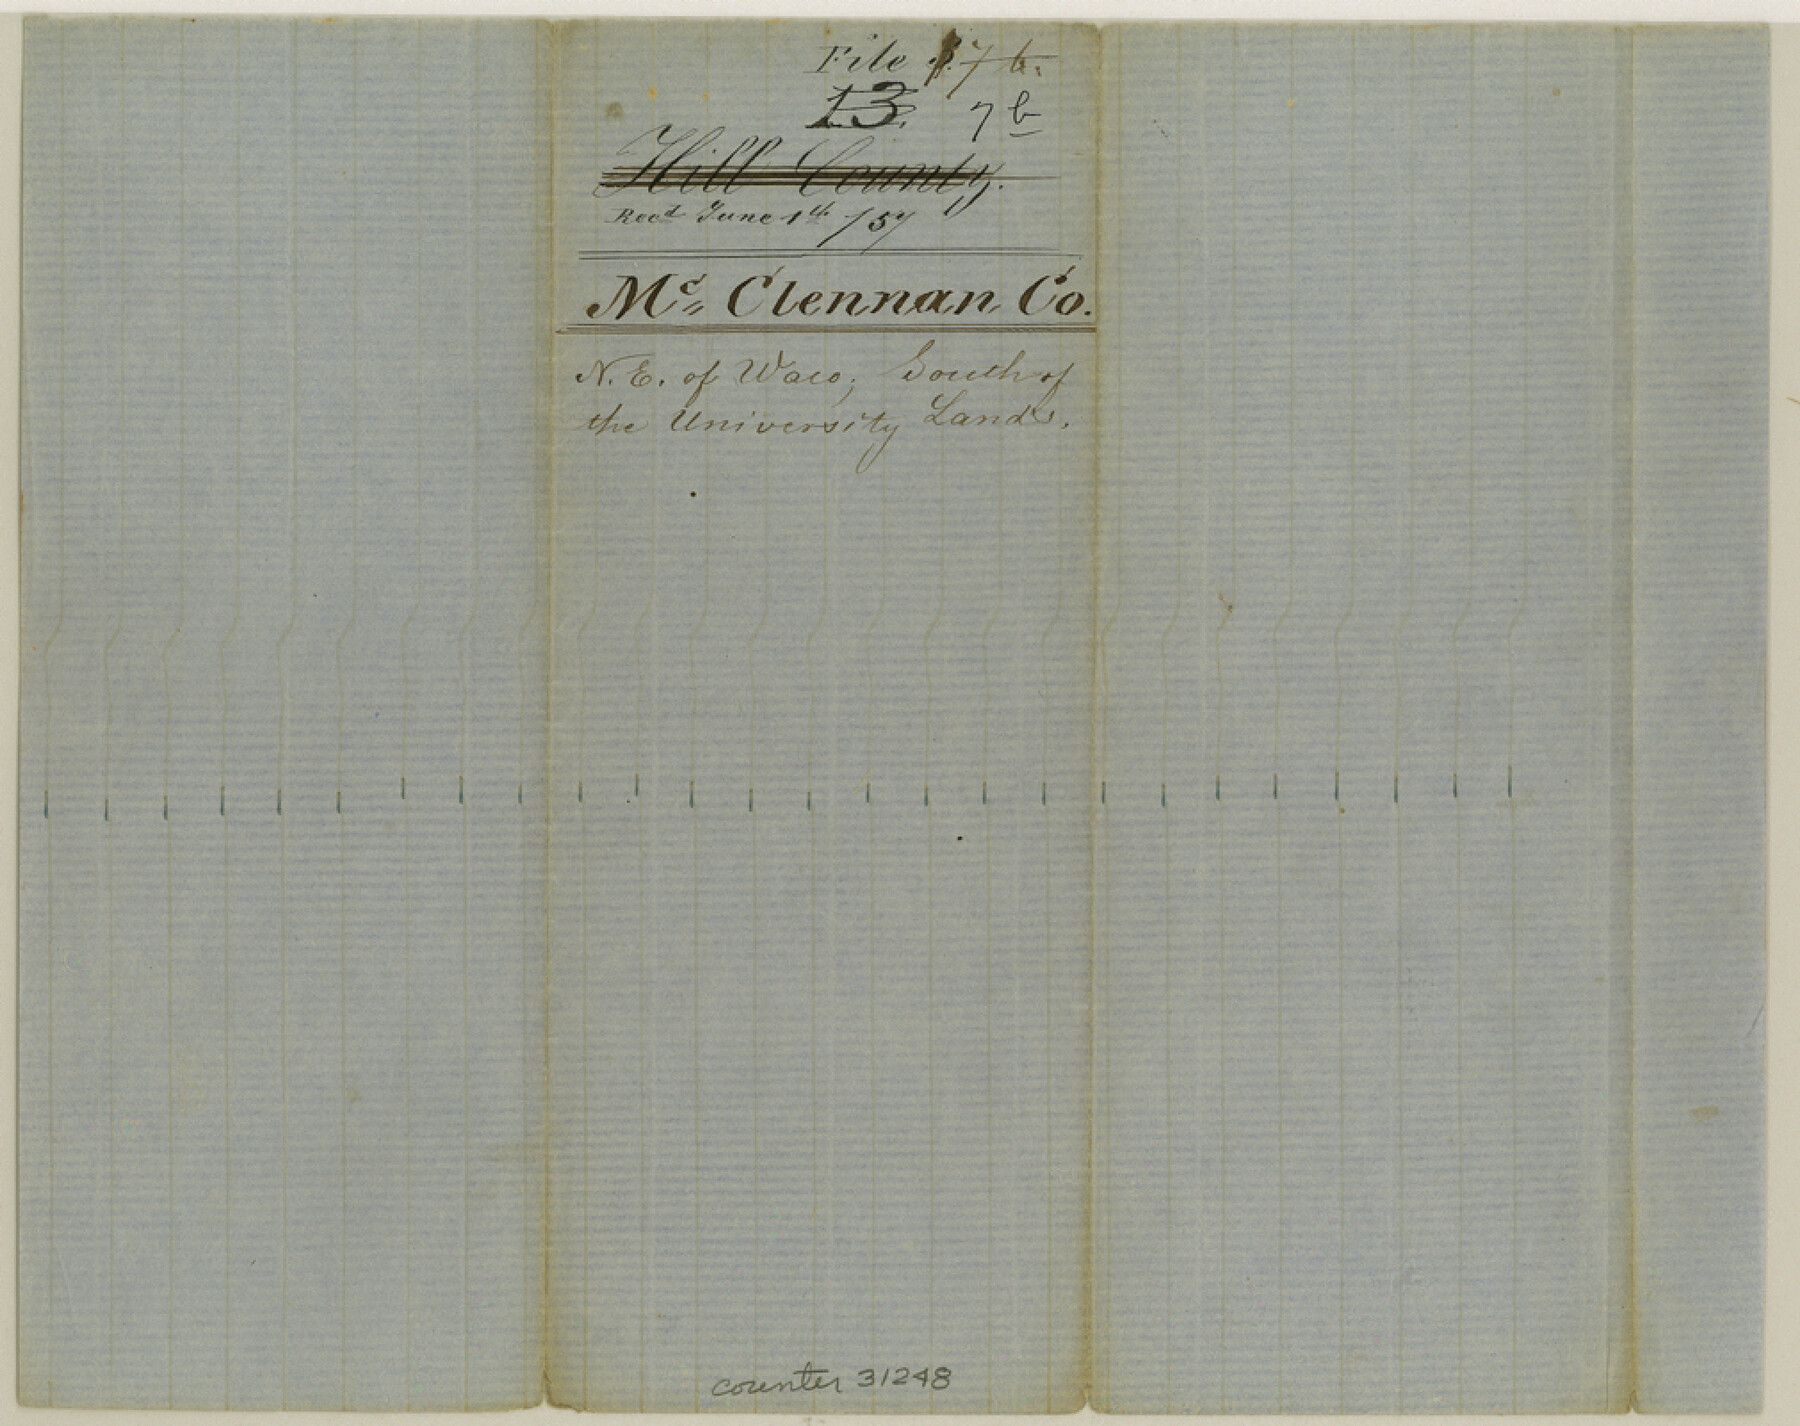 File 7 b.
13. 7 b
Hill County.
Recd June 1st /57
Mc Clennan Co.
N. E. of Waco, South of
the University Lands.
counter 31248